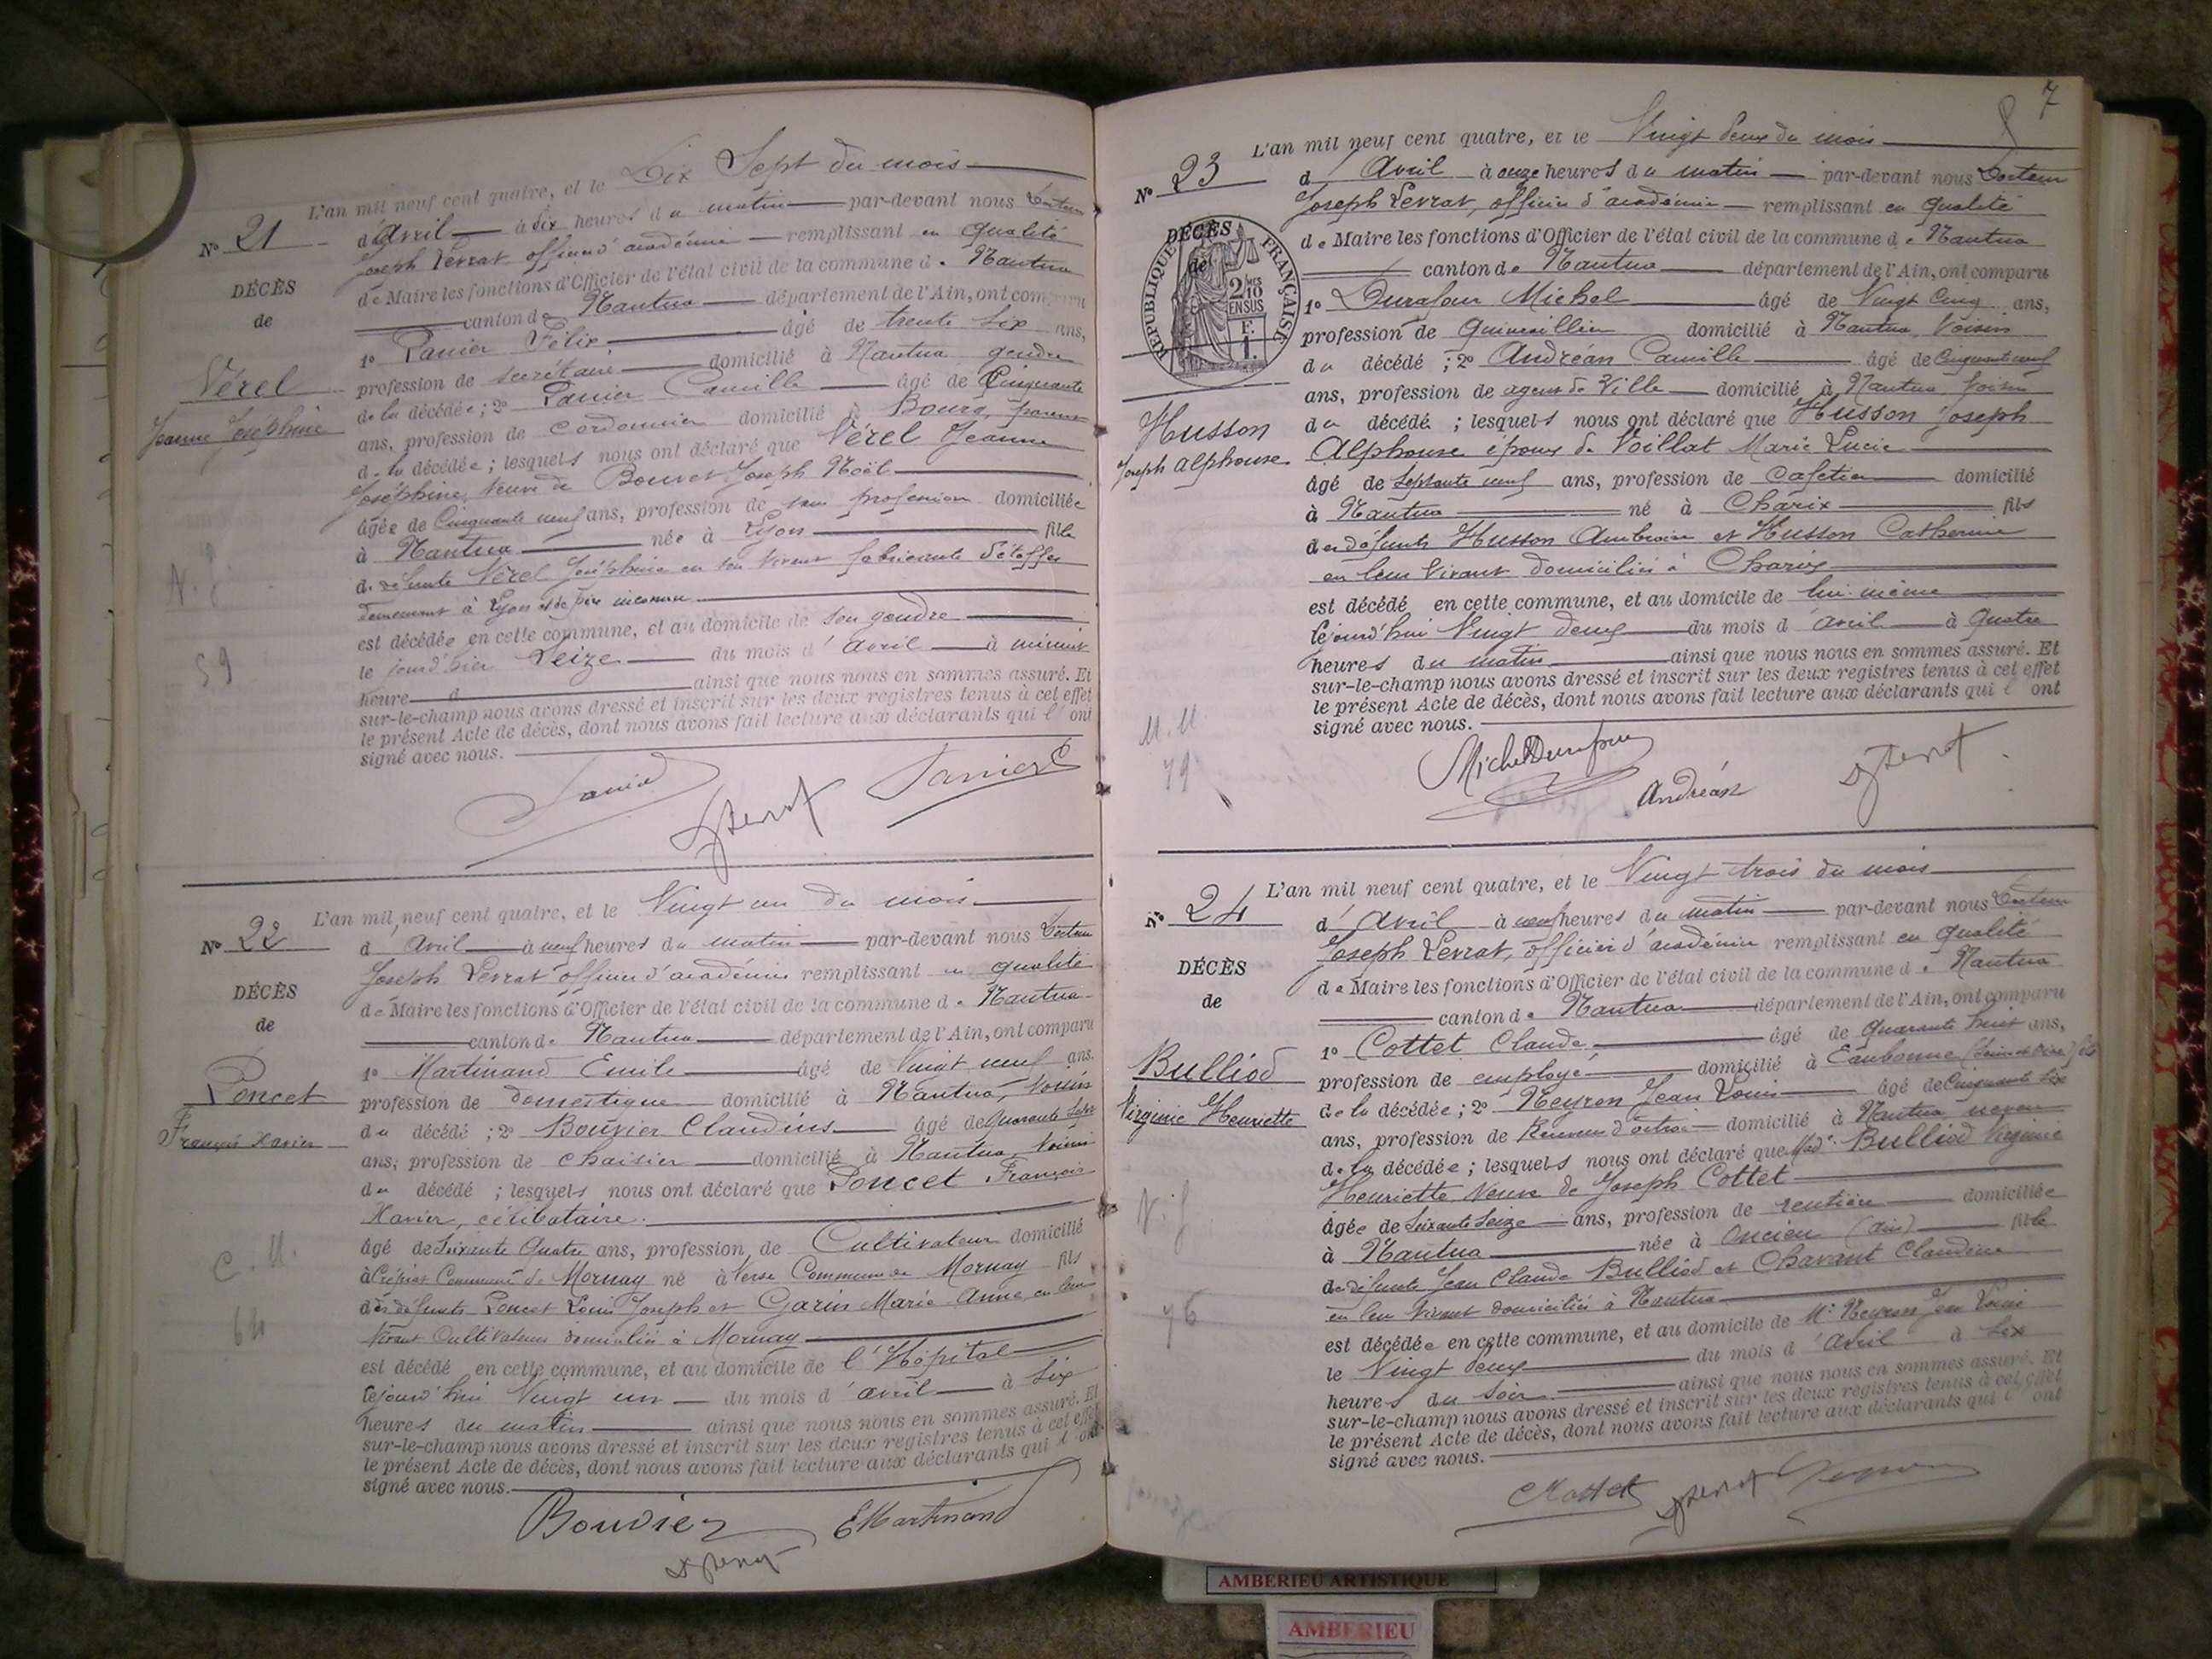 L'an mil neuf cent quatre, et le Dix Sept du mois
N° 21
d'Avril à dix heures du matin par-devant nous Docteur
Joseph Levrat officier d'académie remplissant en qualité
DÉCÈS
de Maire les fonctions d'Officier de l'état civil de la commune de Nantua
de
canton de Nantua département de l'Ain, ont comparu
1° Panier Félix âgé de trente six ans,
Vérel
profession de secrétaire domicilié à Nantua gendre
Jeanne Joséphine
de la décédée ; 2° Panier Camille âgé de Cinquante
ans, profession de Cordonnier domicilié à Bourg, parent
de la décédée ; lesquels nous ont déclaré que Vérel Jeanne
Joséphine, Veuve de Bouvet Joseph Noël
âgée de Cinquante neuf ans, profession de sans profession domiciliée
à Nantua née à Lyon fille
de défunte Vérel Joséphine en son vivant fabricante d'étoffes
demeurant à Lyon et de père inconnu
est décédée en cette commune, et au domicile de son gendre
le jourd'hier Seize du mois d'avril à minuit
59
heure ainsi que nous nous en sommes assuré. Et
sur-le-champ nous avons dressé et inscrit sur les deux registres tenus à cet effet
le présent Acte de décès, dont nous avons fait lecture aux déclarants qui l'ont
signé avec nous.
L'an mil neuf cent quatre, et le Vingt un du mois
N° 22
d'Avril à neuf heures du matin par-devant nous Docteur
Joseph Levrat officier d'académie remplissant en qualité
DÉCÈS
de Maire les fonctions d'Officier de l'état civil de la commune de Nantua
de
canton de Nantua département de l'Ain, ont comparu
1° Martinand Emile âgé de Vingt neuf ans.
Poncet
profession de domestique domicilié à Nantua, Voisin
François Xavier
du décédé ; 2° Bouvier Claudius âgé de Quarante Sept
ans, profession de Chaisier domicilié à Nantua Voisin
du décédé ; lesquels nous ont déclaré que Poncet François
Xavier, célibataire.
âgé de Soixante Quatre ans, profession de Cultivateur domicilié
C. M.
à Crépiat Commune de Mornay né à Verse Commune de Mornay fils
des défunts Poncet Louis Joseph et Garin Marie Anne en leur
64
vivant Cultivateurs domiciliés à Mornay
est décédé en cette commune, et au domicile de l'Hôpital
le jourd'hui Vingt un du mois d'avril à six
heures du matin ainsi que nous nous en sommes assuré. Et
sur-le-champ nous avons dressé et inscrit sur les deux registres tenus à cet effet
le présent Acte de décès, dont nous avons fait lecture aux déclarants qui l'ont
signé avec nous.
Bouvier EMartinand
7
L'an mil neuf cent quatre, et le Vingt deux du mois
N° 23
d'Avril à onze heures du matin par-devant nous Docteur
Joseph Levrat, officier d'académie remplissant en qualité
DÉCÈS
de
RÉPUBLIQUE FRANÇAISE
2/10 EN SUS
F. 1.
de Maire les fonctions d'Officier de l'état civil de la commune de Nantua
canton de Nantua département de l'Ain, ont comparu
1° Durafour Michel âgé de Vingt Cinq ans,
profession de Quincaillier domicilié à Nantua, Voisin
du décédé ; 2° Andréan Camille âgé de Cinquante neuf
ans, profession de agent de Ville domicilié à Nantua Voisin
Husson
du décédé ; lesquels nous ont déclaré que Husson Joseph
Joseph Alphonse
Alphonse époux de Voillat Marie Lucie
âgé de Septante neuf ans, profession de Cafetier domicilié
à Nantua né à Charix fils
des défunts Husson Ambroise et Husson Catherine
en leur vivant domiciliés à Charix
est décédé en cette commune, et au domicile de lui-même
le jourd'hui Vingt deux du mois d'avril à Quatre
heures du matin ainsi que nous nous en sommes assuré. Et
sur-le-champ nous avons dressé et inscrit sur les deux registres tenus à cet effet
le présent Acte de décès, dont nous avons fait lecture aux déclarants qui l'ont
M.M.
signé avec nous.
79
Michel Durafour
Andréan
L'an mil neuf cent quatre, et le Vingt trois du mois
N° 24
d'Avril à neuf heures du matin par-devant nous Docteur
Joseph Levrat, officier d'académie remplissant en qualité
DÉCÈS
de Maire les fonctions d'Officier de l'état civil de la commune de Nantua
de
canton de Nantua département de l'Ain, ont comparu
1° Cottet Claude âgé de Quarante huit ans,
Bulliod
profession de employé domicilié à Eaubonne (Seine et Oise) fils
Virginie Henriette
de la décédée ; 2° Neyron Jean Louis âgé de Cinquante six
ans, profession de Receveur d'octroi domicilié à Nantua neveu
de la décédée ; lesquels nous ont déclaré que Mad° Bulliod Virginie
Henriette Veuve de Joseph Cottet
âgée de Soixante Seize ans, profession de rentière domiciliée
à Nantua née à Oncieu (ain) fille
de défunts Jean Claude Bulliod et Chavant Claudine
76
en leur vivant domiciliés à Nantua
est décédée en cette commune, et au domicile de Mr Neyron Jean Louis
le Vingt deux du mois d'avril à six
heures du soir ainsi que nous nous en sommes assuré. Et
sur-le-champ nous avons dressé et inscrit sur les deux registres tenus à cet effet
le présent Acte de décès, dont nous avons fait lecture aux déclarants qui l'ont
signé avec nous.
AMBERIEU ARTISTIQUE
AMBERIEU